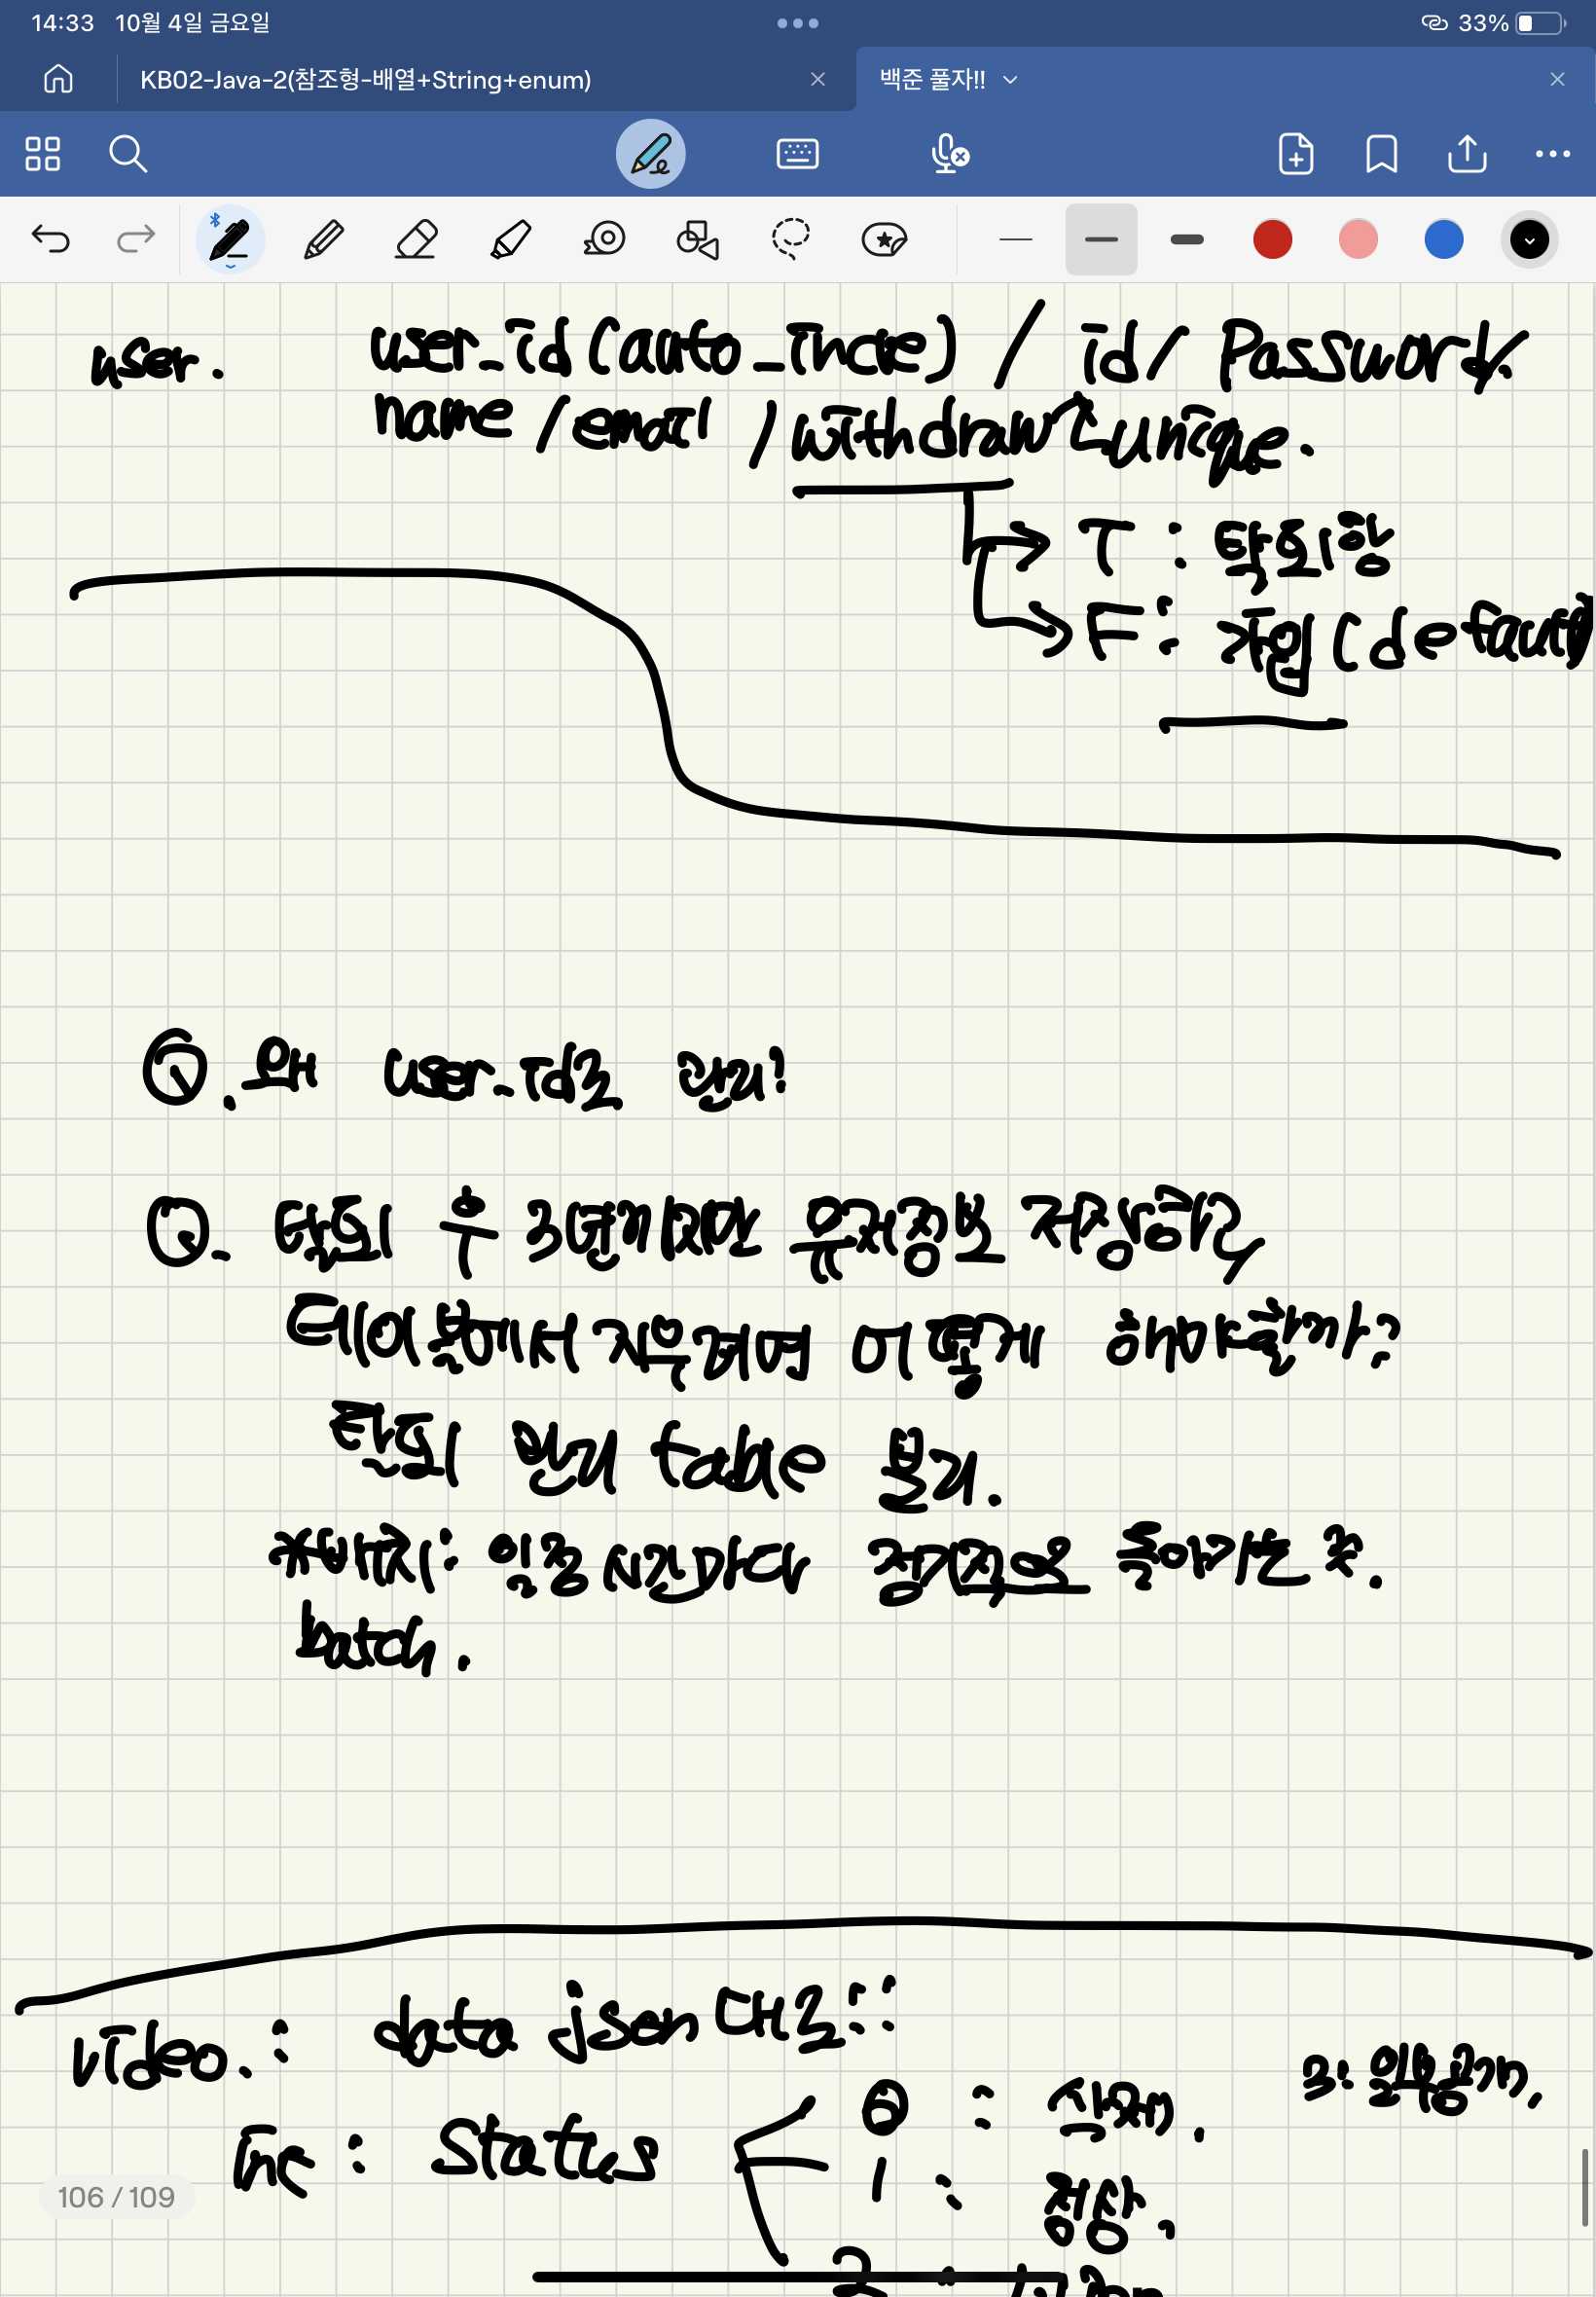 14:33 10월 4일 금요일
33%
KB02-Java-2(참조형-배열+String+enum)
백준 풀자!!
user. user_id (auto_incre) / id / Password /
name / email / withdraw unique.
T : 탈퇴함
F : 가입 (default)
Q. 왜 user_id로 관리!
Q. 탈퇴 후 3년까지만 유저정보 저장 하고,
테이블에서 지울거면 어떻게 해야할까?
탈퇴 관리 table 분리.
*배치: 일정 시간마다 정기적으로 돌아가는 것.
batch.
video. : data json 대로!!
int : Status
0 : 삭제.
3: 일부공개.
1 : 정상.
2 :
106 / 109